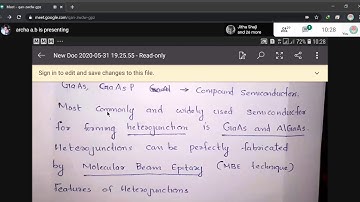 Meet - qsm-awdw-gpp
meet.google.com/qsm-awdw-gpp
archa a.b is presenting
Jitha Shaji
and 2s more
10:28
10:28
New Doc 2020-05-31 19.25.55 - Read-only
Sign in to edit and save changes to this file.
GaAs, GaAs P → Compound Semiconductors.
Most commonly and widely used semiconductor
for forming heterojunction is GaAs and AlGaAs.
Heterojunctions can be perfectly fabricated
by Molecular Beam Epitaxy (MBE technique)
Features of Heterojunctions